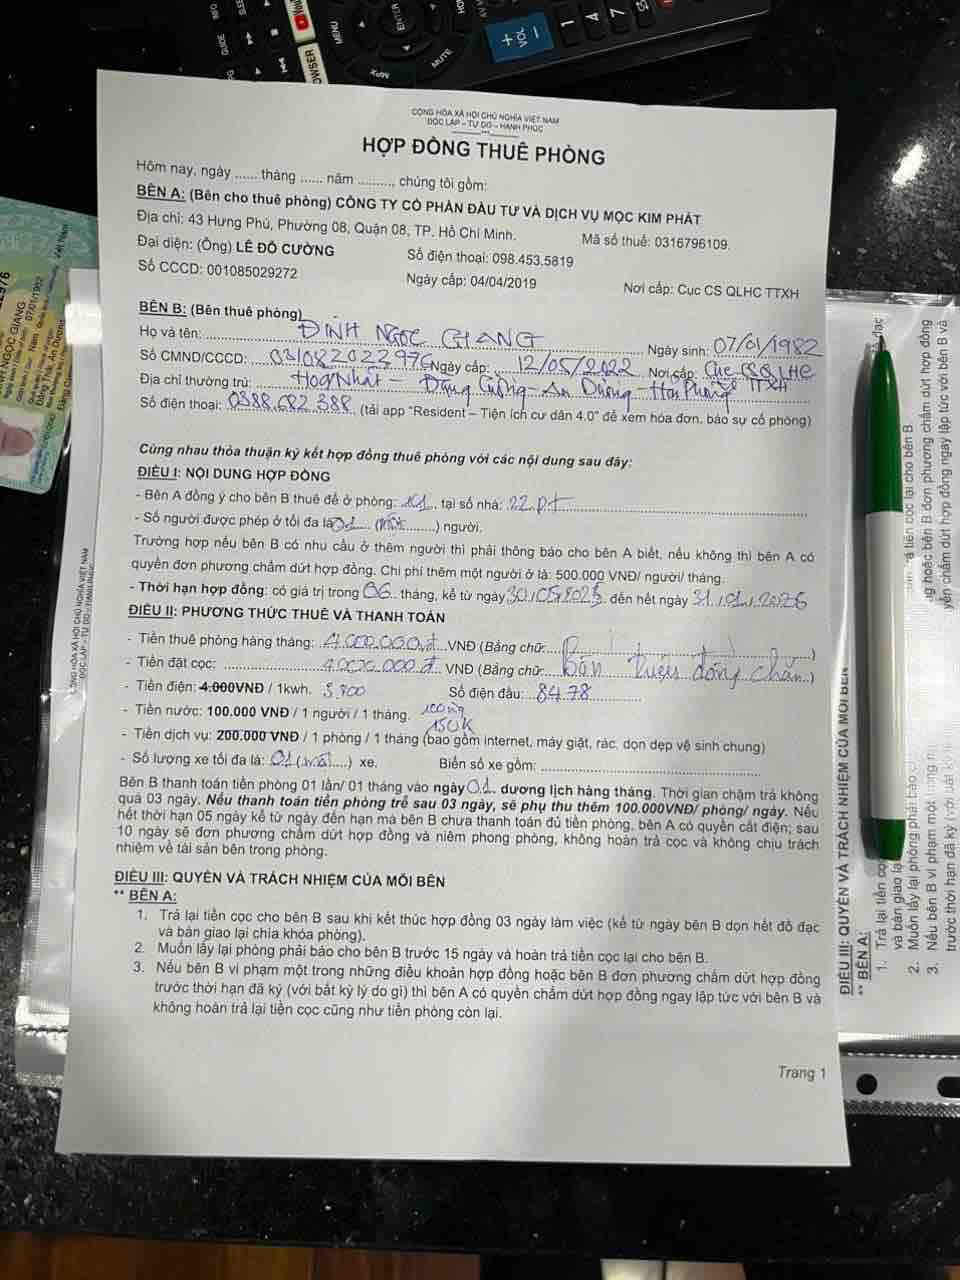 CỘNG HÒA XÃ HỘI CHỦ NGHĨA VIỆT NAM
ĐỘC LẬP – TỰ DO – HẠNH PHÚC
HỢP ĐỒNG THUÊ PHÒNG
Hôm nay, ngày ...... tháng ...... năm .........., chúng tôi gồm:
BÊN A: (Bên cho thuê phòng) CÔNG TY CỔ PHẦN ĐẦU TƯ VÀ DỊCH VỤ MỘC KIM PHÁT
Địa chỉ: 43 Hưng Phú, Phường 08, Quận 08, TP. Hồ Chí Minh. Mã số thuế: 0316796109.
Đại diện: (Ông) LÊ ĐỖ CƯỜNG Số điện thoại: 098.453.5819
Số CCCD: 001085029272 Ngày cấp: 04/04/2019 Nơi cấp: Cục CS QLHC TTXH
BÊN B: (Bên thuê phòng)
Họ và tên: ĐINH NGỌC GIANG Ngày sinh: 07/01/1982
Số CMND/CCCD: 031082022976 Ngày cấp: 12/05/2022 Nơi cấp: Cục CSQLHC TTXH
Địa chỉ thường trú: Hoà Nhất – Đặng Cương – An Dương – Hải Phòng
Số điện thoại: 0388.682.388 (tải app "Resident – Tiện ích cư dân 4.0" để xem hóa đơn, báo sự cố phòng)
Cùng nhau thỏa thuận ký kết hợp đồng thuê phòng với các nội dung sau đây:
ĐIỀU I: NỘI DUNG HỢP ĐỒNG
- Bên A đồng ý cho bên B thuê để ở phòng: 101, tại số nhà: 22 pt
- Số người được phép ở tối đa là 01 (một) người.
Trường hợp nếu bên B có nhu cầu ở thêm người thì phải thông báo cho bên A biết, nếu không thì bên A có
quyền đơn phương chấm dứt hợp đồng. Chi phí thêm một người ở là: 500.000 VNĐ/ người/ tháng.
- Thời hạn hợp đồng: có giá trị trong 06 tháng, kể từ ngày 30/05/2025 đến hết ngày 31/01/2026
ĐIỀU II: PHƯƠNG THỨC THUÊ VÀ THANH TOÁN
- Tiền thuê phòng hàng tháng: 4.000.000,đ VNĐ (Bằng chữ: )
- Tiền đặt cọc: 4.000.000.đ VNĐ (Bằng chữ: Bốn triệu đồng chẵn )
- Tiền điện: 4.000VNĐ / 1kwh. 3.800 Số điện đầu: 8478
- Tiền nước: 100.000 VNĐ / 1 người / 1 tháng.
150K
- Tiền dịch vụ: 200.000 VNĐ / 1 phòng / 1 tháng (bao gồm internet, máy giặt, rác, dọn dẹp vệ sinh chung)
- Số lượng xe tối đa là: 01 (một) xe. Biển số xe gồm:
Bên B thanh toán tiền phòng 01 lần/ 01 tháng vào ngày 01 dương lịch hàng tháng. Thời gian chậm trả không
quá 03 ngày. Nếu thanh toán tiền phòng trễ sau 03 ngày, sẽ phụ thu thêm 100.000VNĐ/ phòng/ ngày. Nếu
hết thời hạn 05 ngày kể từ ngày đến hạn mà bên B chưa thanh toán đủ tiền phòng, bên A có quyền cắt điện; sau
10 ngày sẽ đơn phương chấm dứt hợp đồng và niêm phong phòng, không hoàn trả cọc và không chịu trách
nhiệm về tài sản bên trong phòng.
ĐIỀU III: QUYỀN VÀ TRÁCH NHIỆM CỦA MỖI BÊN
** BÊN A:
1. Trả lại tiền cọc cho bên B sau khi kết thúc hợp đồng 03 ngày làm việc (kể từ ngày bên B dọn hết đồ đạc
và bàn giao lại chìa khóa phòng).
2. Muốn lấy lại phòng phải báo cho bên B trước 15 ngày và hoàn trả tiền cọc lại cho bên B.
3. Nếu bên B vi phạm một trong những điều khoản hợp đồng hoặc bên B đơn phương chấm dứt hợp đồng
trước thời hạn đã ký (với bất kỳ lý do gì) thì bên A có quyền chấm dứt hợp đồng ngay lập tức với bên B và
không hoàn trả lại tiền cọc cũng như tiền phòng còn lại.
Trang 1
ĐIỀU III: QUYỀN VÀ TRÁCH NHIỆM CỦA MỖI BÊN
** BÊN A:
1. Trả lại tiền cọc
và bàn giao lại
2. Muốn lấy lại phòng phải báo
3. Nếu bên B vi phạm một trong
trước thời hạn đã ký (với bất kỳ
CỘNG HÒA XÃ HỘI CHỦ NGHĨA VIỆT NAM
ĐỘC LẬP – TỰ DO – HẠNH PHÚC
NGỌC GIANG
07/01/1982
Nam
MENU
ENTER
MUTE
VOL
GUIDE
INFO
1
4
7